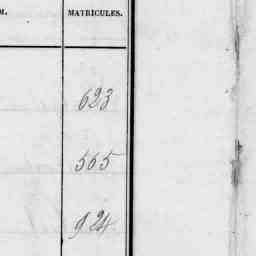 M. MATRICULES.
623
565
924